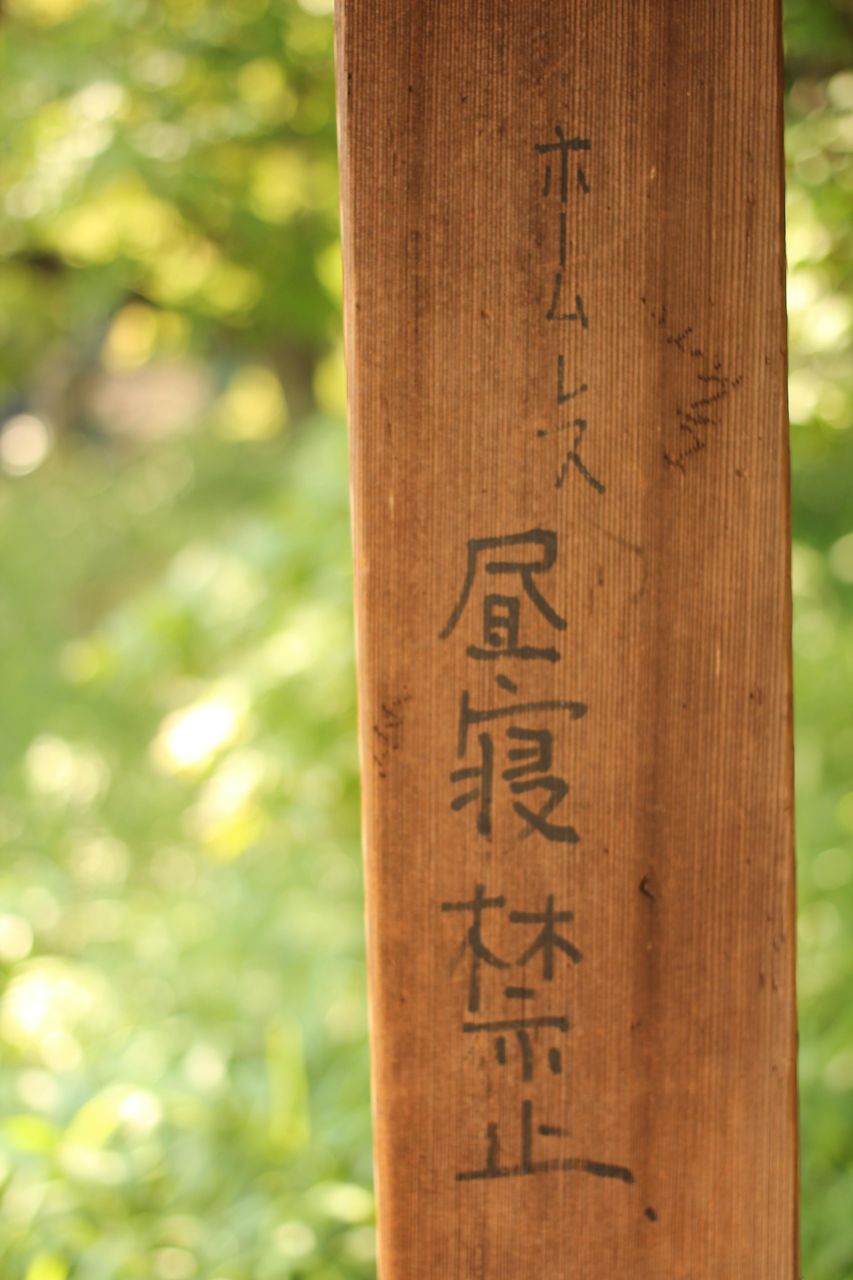 ホームレス
昼寝禁止.